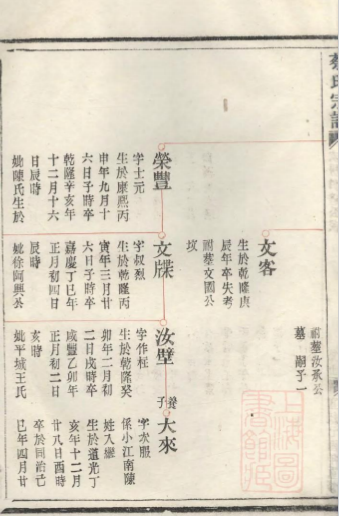 蔡氏宗譜
祔墓汝承公
墓 嗣子一
文客
生於乾隆庚
辰年卒失考
祔墓文園公
墳
榮豐
字士元
生於康熙丙
申年九月十
六日子時卒
乾隆辛亥年
十二月十六
日辰時
妣陳氏生於
文牒
字叔烈
生於乾隆丙
寅年三月廿
六日子時卒
嘉慶丁巳年
正月初四日
辰時
妣徐阿興公
汝壁
字作枉
生於乾隆癸
卯年二月初
二日戌時卒
咸豐乙卯年
正月初二日
亥時
妣平城王氏
養子
大來
字次服
姓入繼
係小江南陳
生於道光丁
亥年十二月
廿八日酉時
卒於同治己
巳年四月廿
上海圖書館藏